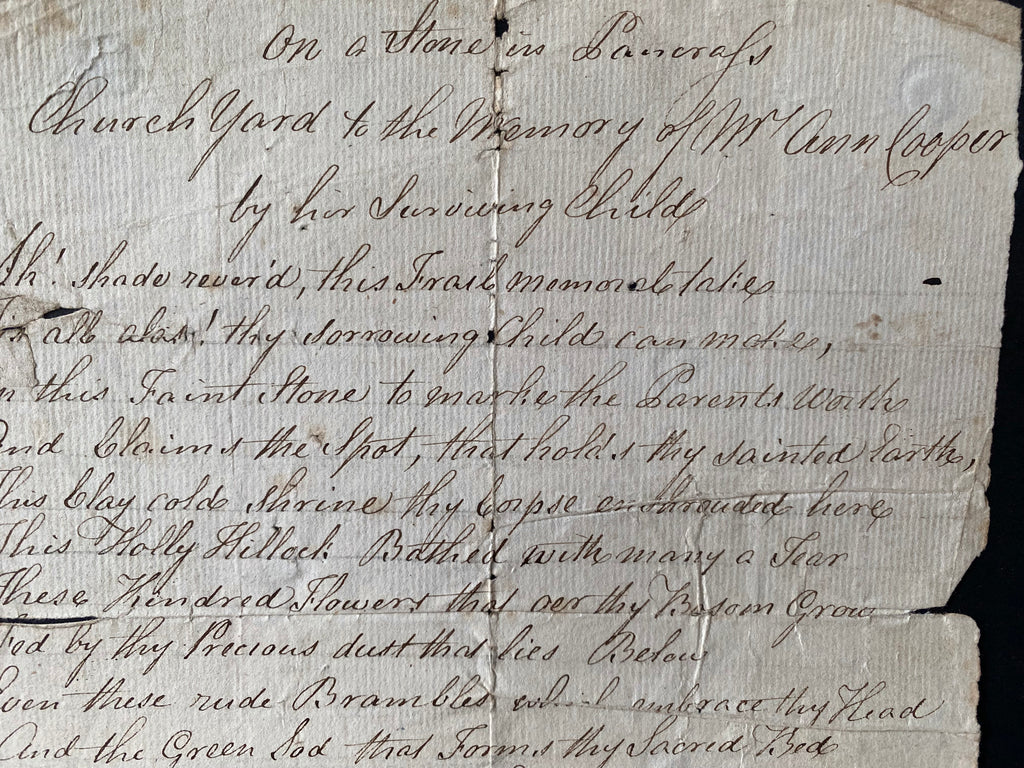 On a Stone in Pancrass
Church Yard to the Memory of Mrs Ann Cooper
by her Surviving Child
Ah! shade rever'd, this Frail memorial take
all alas! thy sorrowing Child can make,
On this Faint Stone to marke the Parents Worth
And Claims the Spot, that holds thy sainted Earth,
This Clay cold shrine thy Corpse enshrouded here
This Holly Hillock Bathed with many a Tear
These Kindred Flowers that oer thy Bosom Grow
Fed by thy Precious dust that lies Below
Even these rude Brambles which embrace thy Head
And the Green Sod that Forms thy Sacred Bed